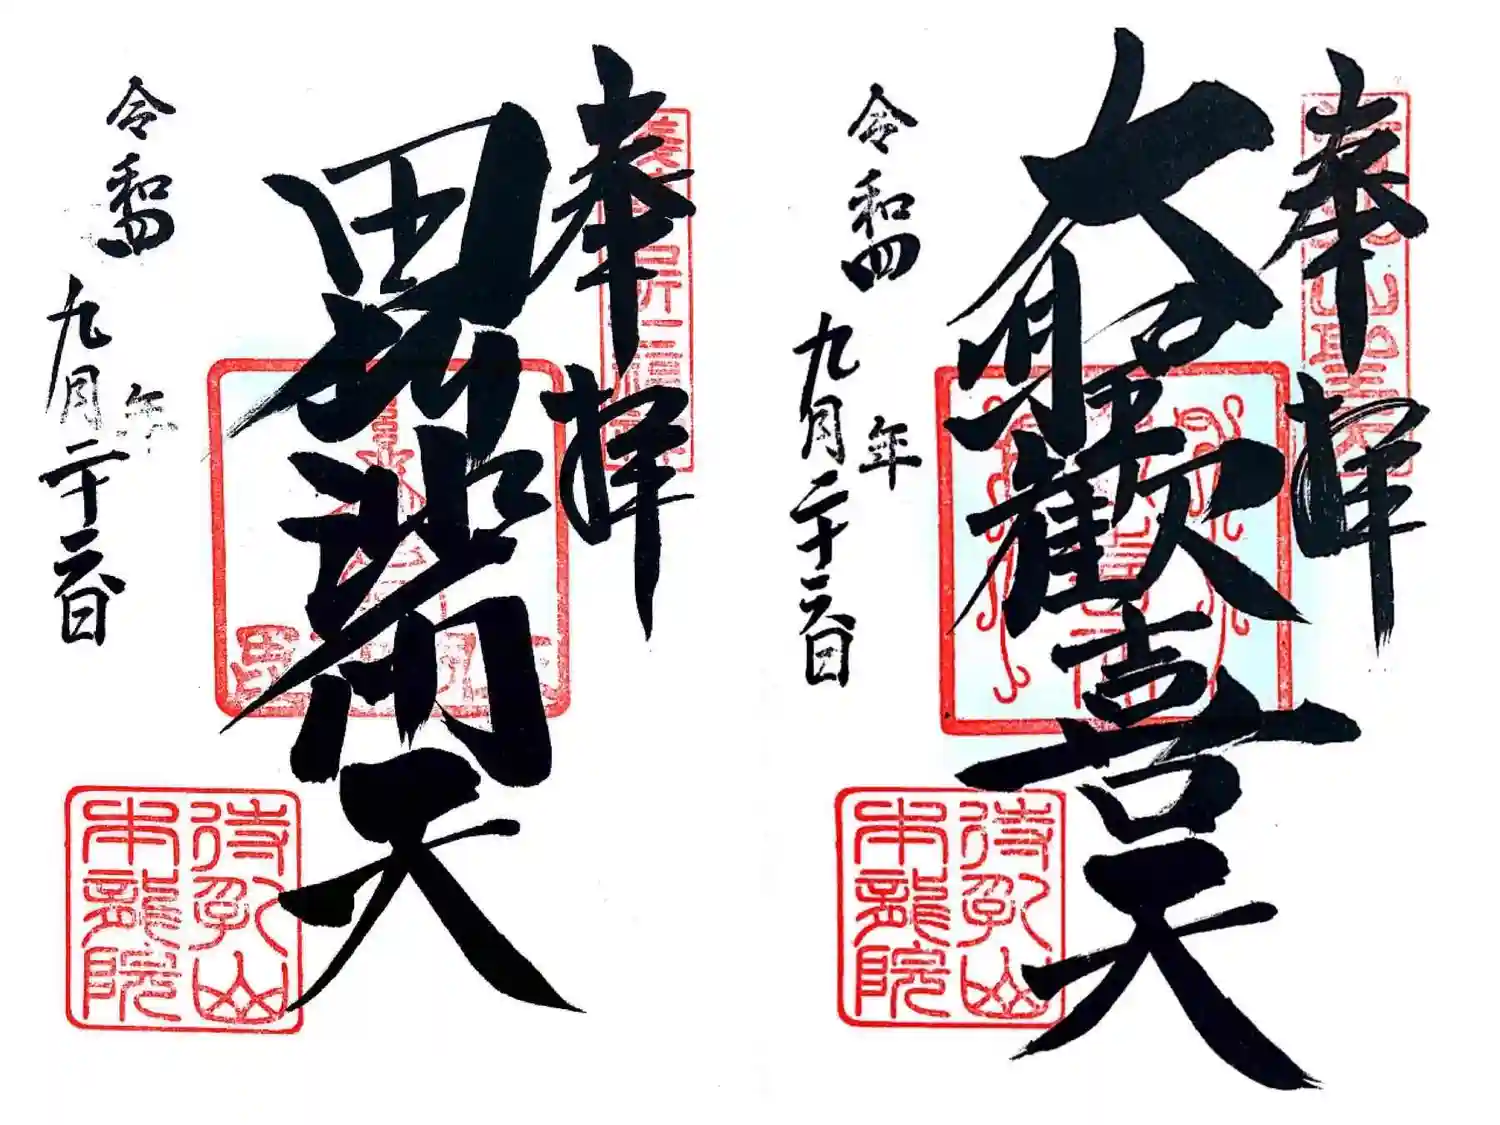 奉拝
待乳山聖天
大聖歓喜天
令和四年
九月二十六日
待乳山
本龍院
奉拝
毘沙門天
令和四年
九月二十六日
待乳山
本龍院